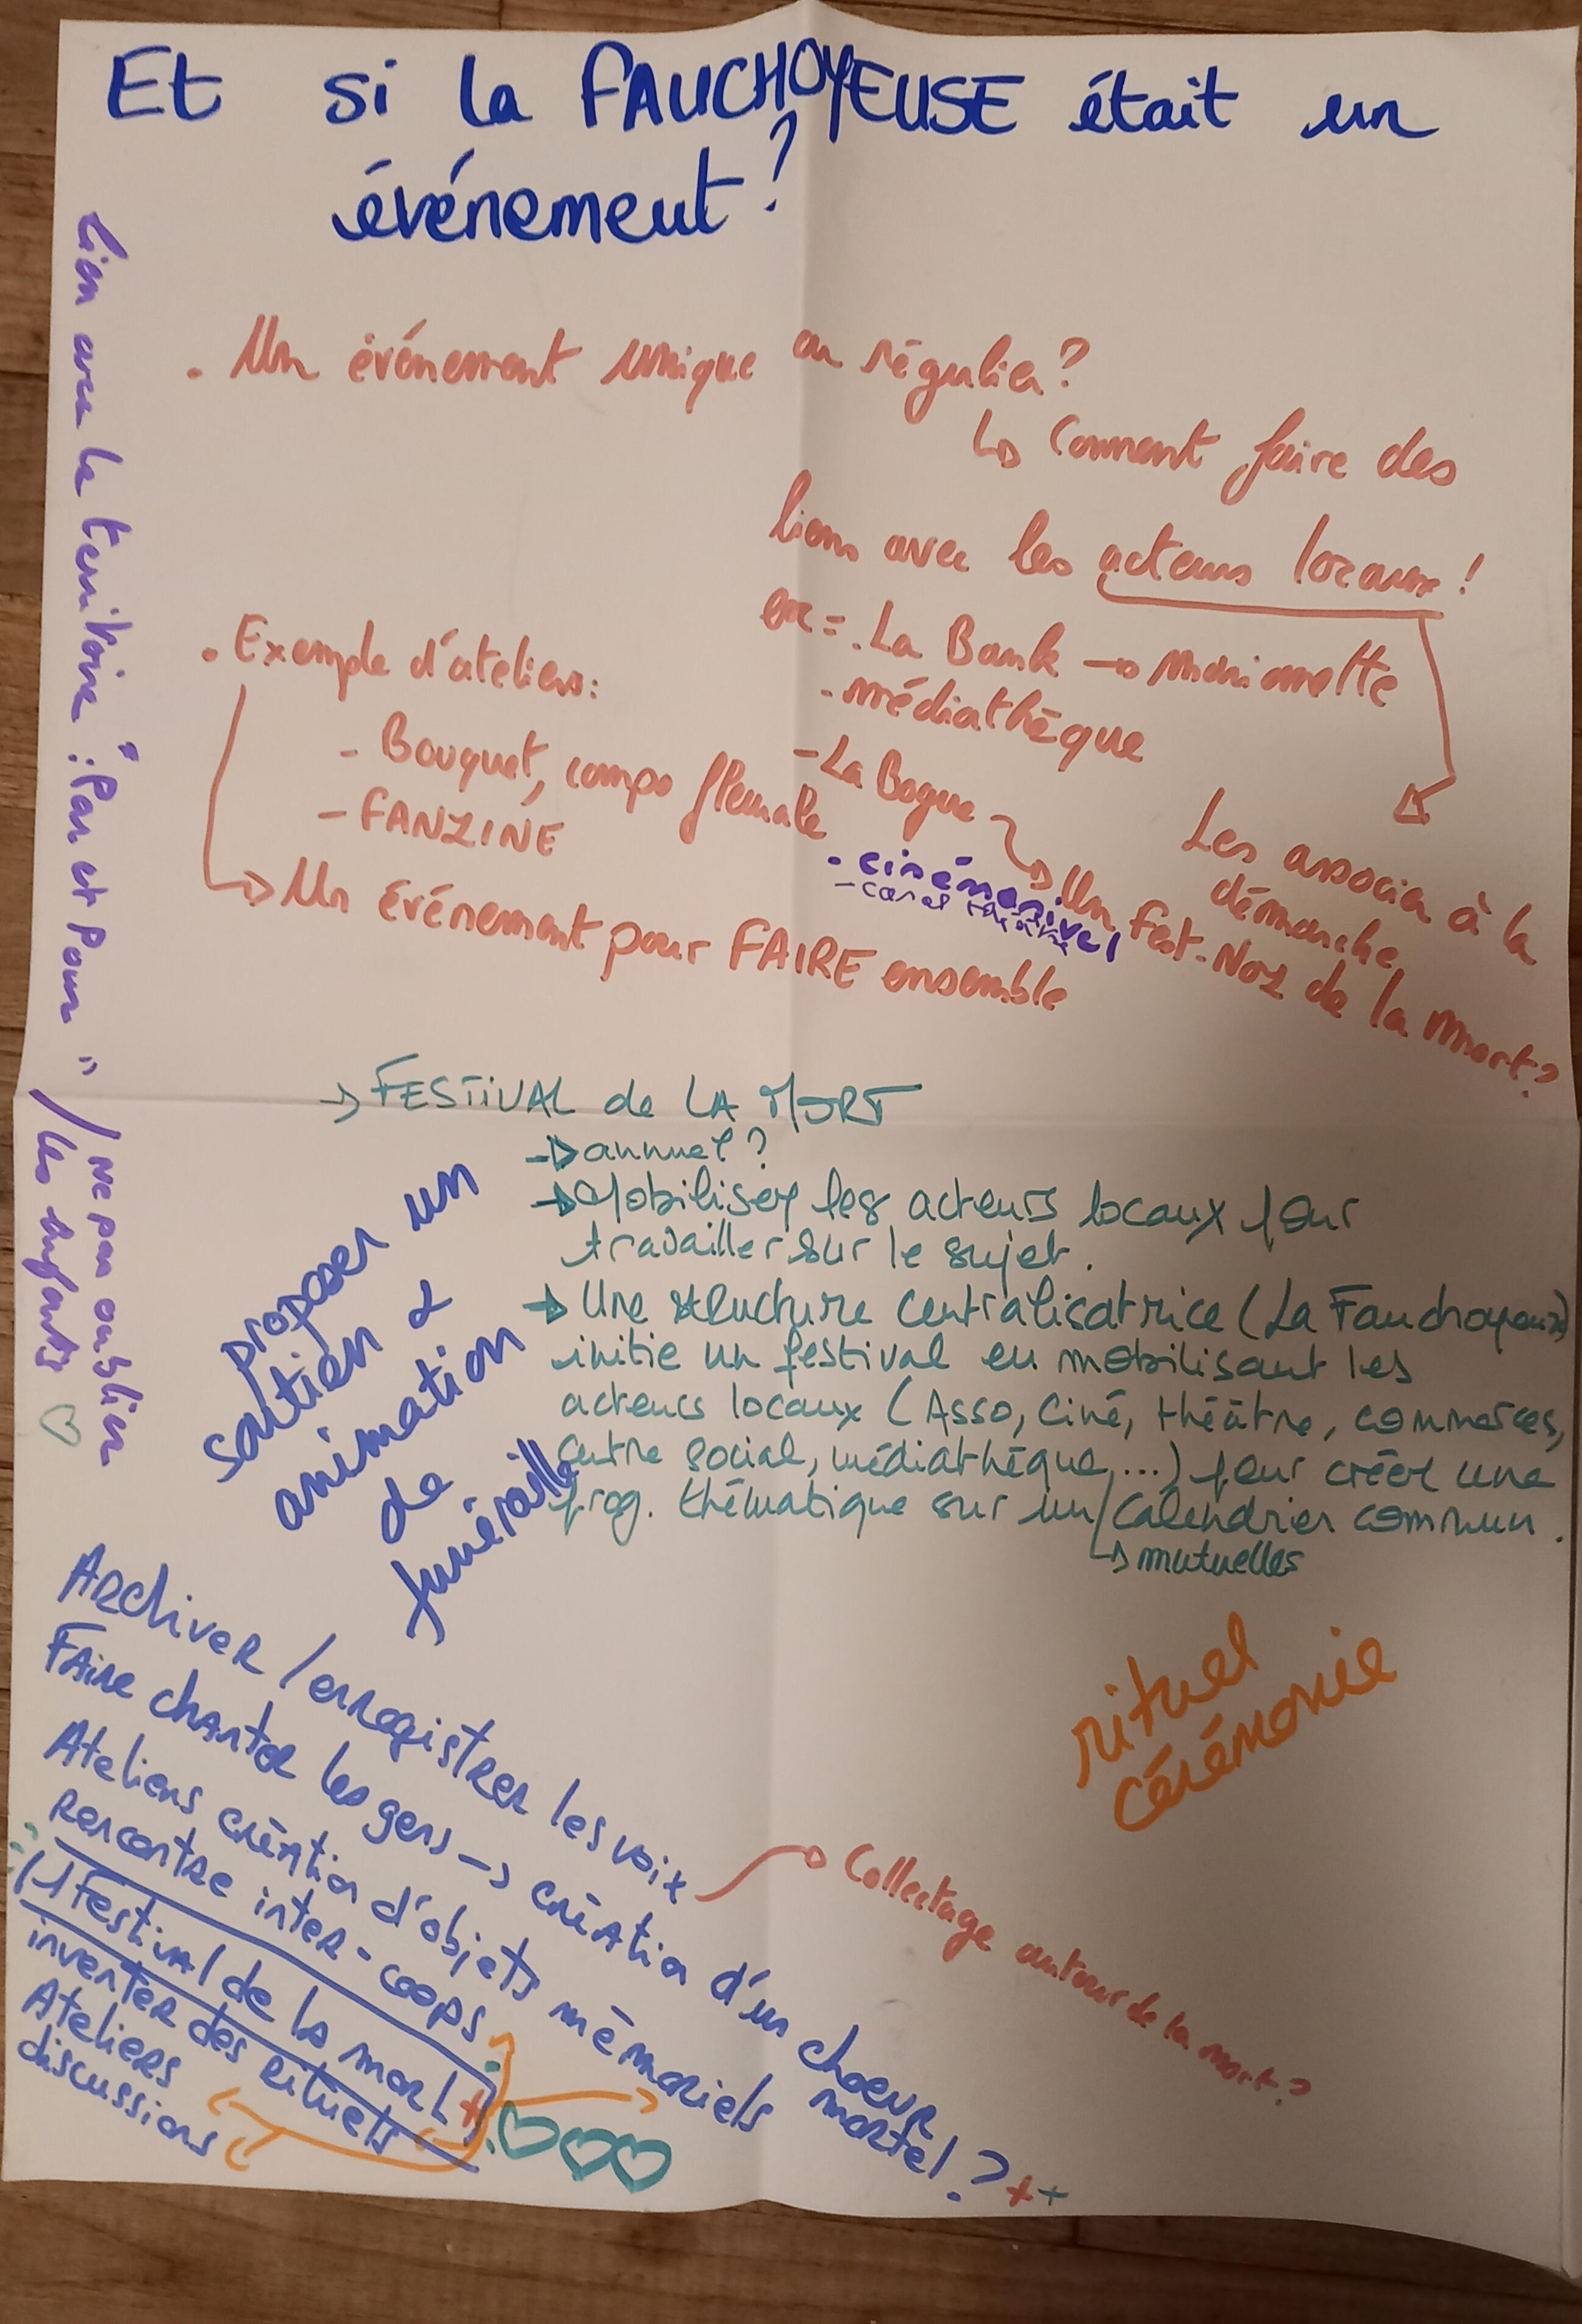 Et si la FAUCHOYEUSE était un
événement ?
Lien avec le territoire : "Par et Pour" / ne pas oublier
les enfants ♡
. Un événement unique ou régulier ?
↳ Comment faire des
liens avec les acteurs locaux !
ex = . La Bank → Marionnette
- médiathèque
- La Bogue → Un Fest-Noz de la Mort ?
. cinémanivel
Les associer à la
démarche
. Exemple d'ateliers :
- Bouquet, compo florale
- FANZINE
→ Un événement pour FAIRE ensemble
→ FESTIVAL de LA MORT
→ annuel ?
→ Mobiliser les acteurs locaux pour
travailler sur le sujet.
→ Une structure centralisatrice (La Fauchoyeuse)
initie un festival en mobilisant les
acteurs locaux (Asso, Ciné, théâtre, commerces,
centre social, médiathèque, ...) pour créer une
prog. thématique sur un / calendrier commun.
↳ mutuelles
proposer un
soutien &
animation
de
funéraille
rituel
cérémonie
Archiver / enregistrer les voix
→ Collectage autour de la mort ?
Faire chanter les gens → création d'un choeur mortel ? + +
Ateliers création d'objets mémoriels
rencontre inter-coops
(1 Festival de la mort +)
♡♡♡
inventer des rituels
Ateliers
discussions